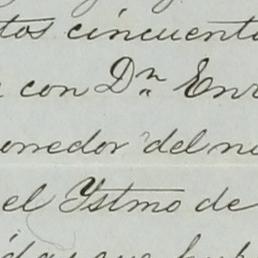 tos cincuenta
con Dn Enr
orredor del n
el Ystmo de